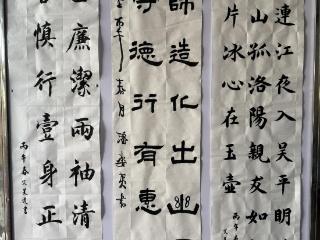 連江夜入吴平明
山孤洛陽親友如
片冰心在玉壺
丙午
師造化出幽
德行有惠
丙午春月潘
廉潔兩袖清
慎行壹身正
丙午春